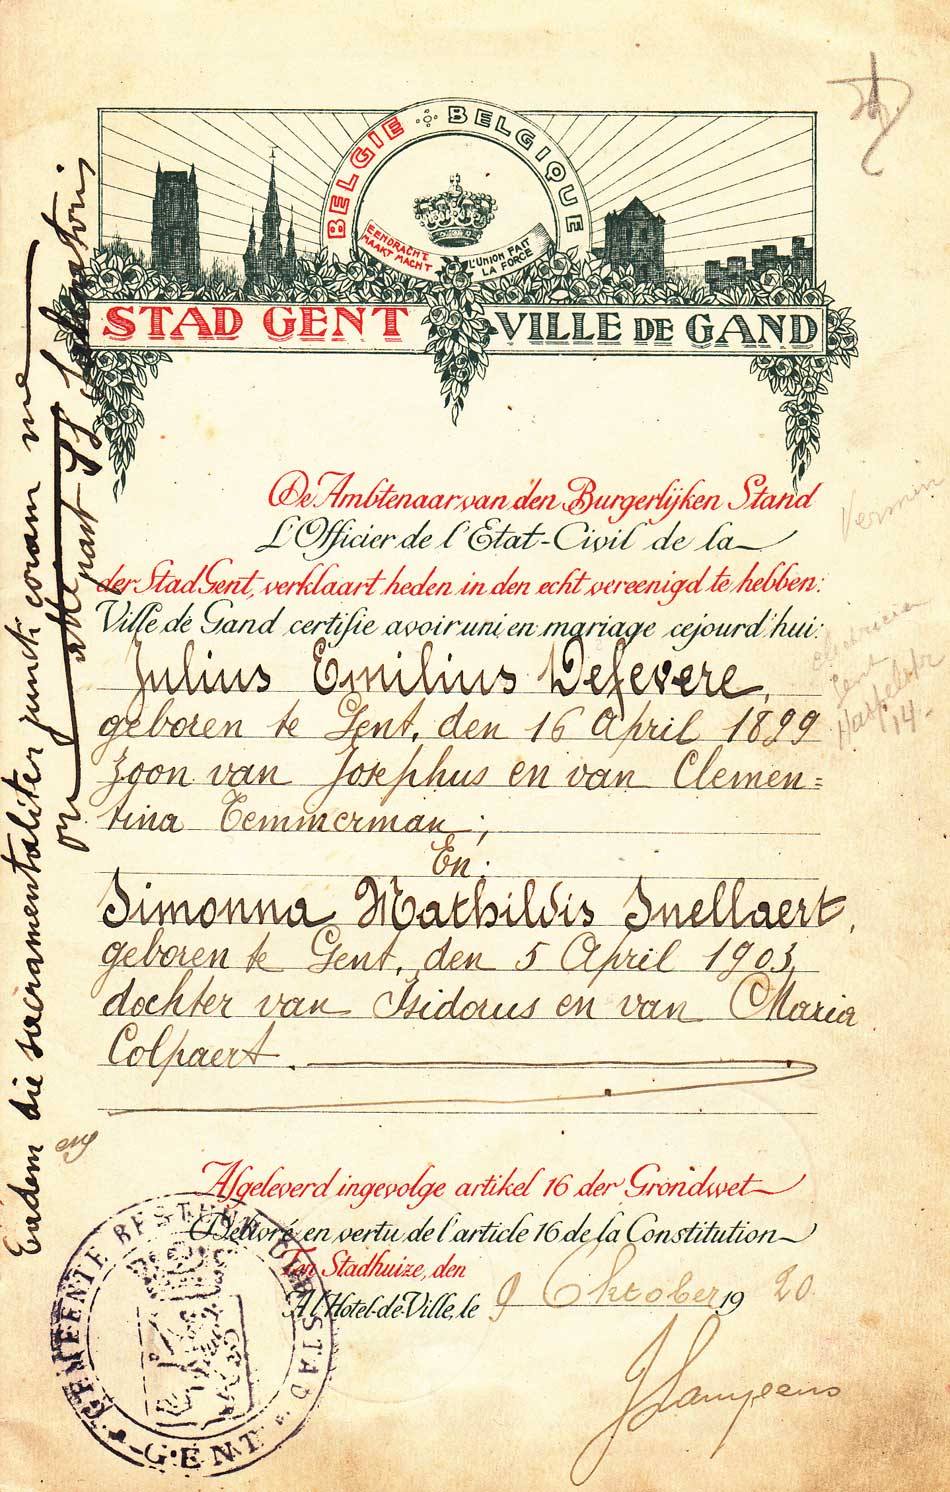 BELGIE BELGIQUE
EENDRACHT
MAAKT MACHT
L'UNION FAIT
LA FORCE
STAD GENT VILLE DE GAND
De Ambtenaar van den Burgerlijken Stand
L'Officier de l'Etat-Civil de la
der Stad Gent, verklaart heden in den echt vereenigd te hebben:
Ville de Gand certifie avoir uni en mariage cejourd'hui:
Julius Emilius Defevere,
geboren te Gent, den 16 April 1899
zoon van Josephus en van Clemen=
tina Temmerman;
En:
Simonna Mathildis Snellaert,
geboren te Gent, den 5 April 1903,
dochter van Isidorus en van Maria
Colpaert.
Afgeleverd ingevolge artikel 16 der Grondwet
Délivré en vertu de l'article 16 de la Constitution
Ten Stadhuize, den
A l'Hotel-de-Ville, le 9 Oktober 1920
GEMEENTE BESTUUR DER STAD
GENT
Eadem die sacramentaliter juncti coram me
past SS Salvatoris
Electricien
Gent
14